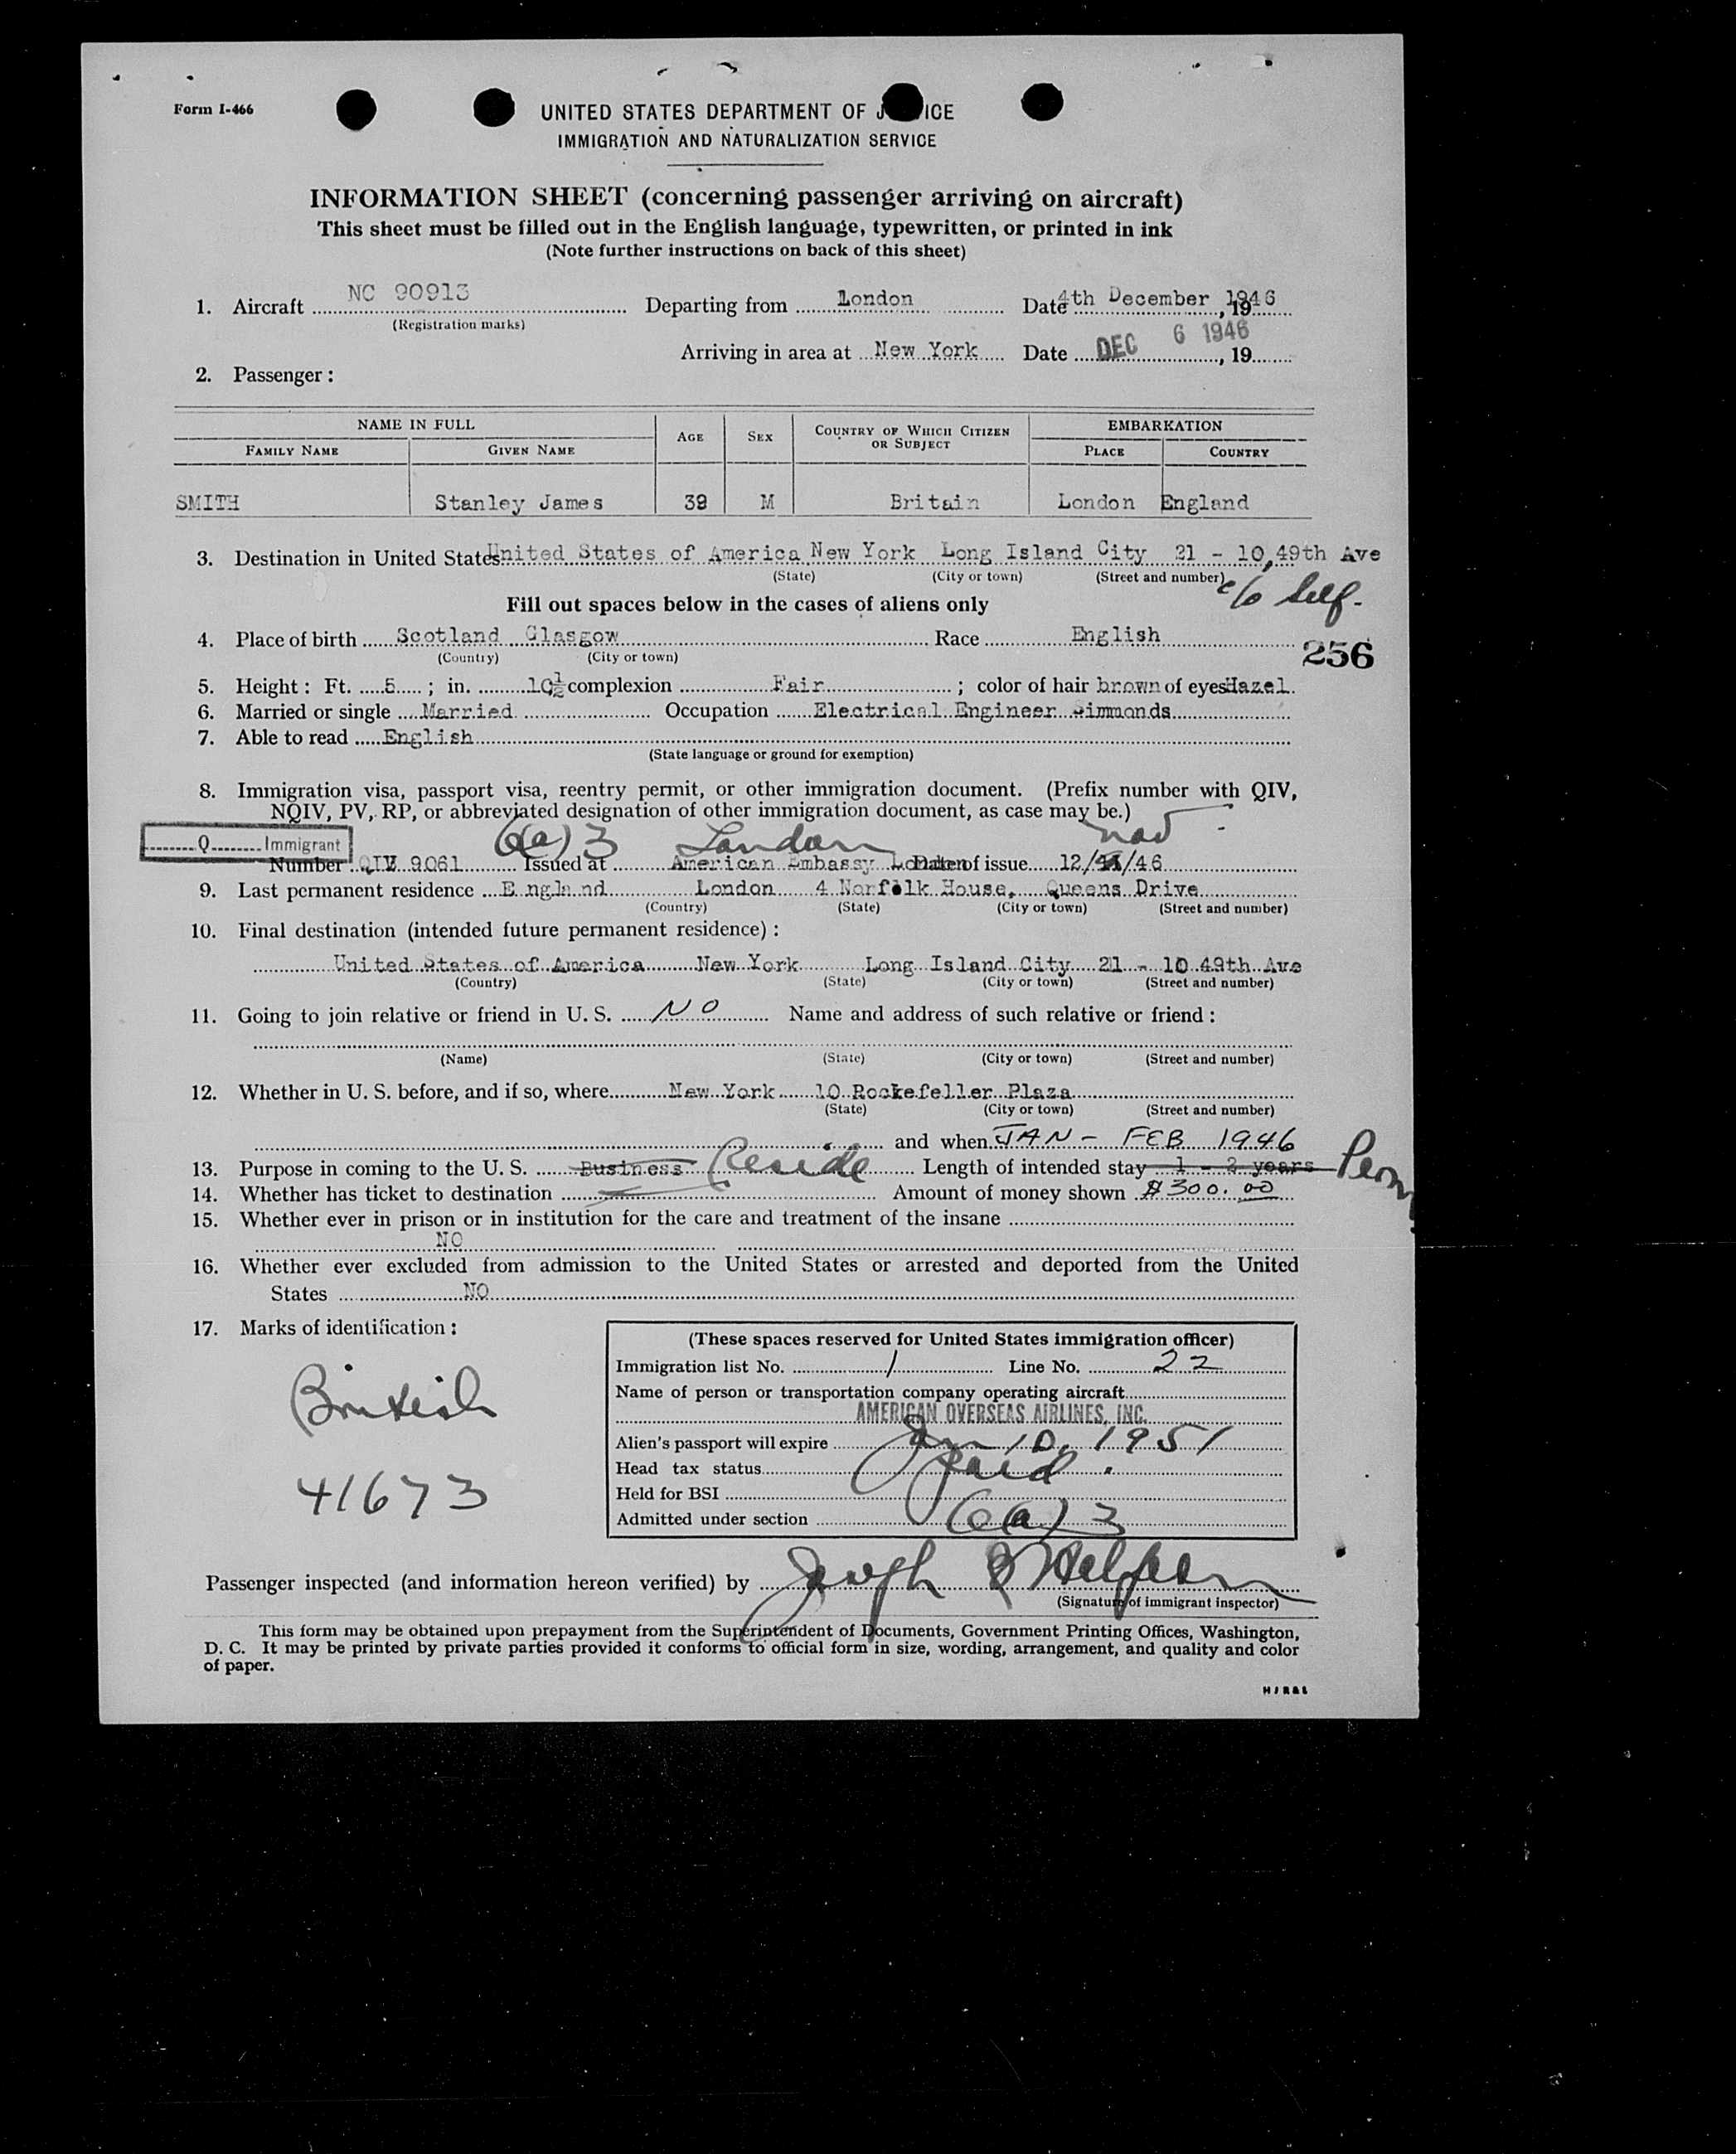 Form I-466
UNITED STATES DEPARTMENT OF J ICE
IMMIGRATION AND NATURALIZATION SERVICE
INFORMATION SHEET (concerning passenger arriving on aircraft)
This sheet must be filled out in the English language, typewritten, or printed in ink
(Note further instructions on back of this sheet)
1. Aircraft NC 90913 Departing from London Date 4th December, 1946
(Registration marks)
Arriving in area at New York Date DEC 6 1946, 19
2. Passenger:
NAME IN FULL AGE SEX COUNTRY OF WHICH CITIZEN OR SUBJECT EMBARKATION
FAMILY NAME GIVEN NAME PLACE COUNTRY
SMITH Stanley James 39 M Britain London England
3. Destination in United States United States of America New York Long Island City 21 - 10, 49th Ave
(State) (City or town) (Street and number)
c/o Self.
Fill out spaces below in the cases of aliens only
4. Place of birth Scotland Glasgow Race English
(Country) (City or town)
256
5. Height: Ft. 5; in. 10½ complexion Fair; color of hair brown of eyes Hazel
6. Married or single Married Occupation Electrical Engineer Simmonds
7. Able to read English
(State language or ground for exemption)
8. Immigration visa, passport visa, reentry permit, or other immigration document. (Prefix number with QIV,
NQIV, PV, RP, or abbreviated designation of other immigration document, as case may be.)
Q Immigrant 6(a)3 London Nov
Number QIV 9061 Issued at American Embassy London Date of issue 12/ /46
9. Last permanent residence England London 4 Norfolk House, Queens Drive
(Country) (State) (City or town) (Street and number)
10. Final destination (intended future permanent residence):
United States of America New York Long Island City 21 - 10 49th Ave
(Country) (State) (City or town) (Street and number)
11. Going to join relative or friend in U. S. NO Name and address of such relative or friend:
(Name) (State) (City or town) (Street and number)
12. Whether in U. S. before, and if so, where New York 10 Rockefeller Plaza
(State) (City or town) (Street and number)
and when JAN - FEB 1946
13. Purpose in coming to the U. S. Business Reside Length of intended stay 1 - 2 years Perm
14. Whether has ticket to destination Amount of money shown $300.00
15. Whether ever in prison or in institution for the care and treatment of the insane
NO
16. Whether ever excluded from admission to the United States or arrested and deported from the United
States NO
17. Marks of identification:
British
41673
(These spaces reserved for United States immigration officer)
Immigration list No. 1 Line No. 22
Name of person or transportation company operating aircraft
AMERICAN OVERSEAS AIRLINES, INC.
Alien's passport will expire Jan 10, 1951
Head tax status paid.
Held for BSI
Admitted under section 6(a)3
Passenger inspected (and information hereon verified) by Joseph
(Signature of immigrant inspector)
This form may be obtained upon prepayment from the Superintendent of Documents, Government Printing Offices, Washington,
D. C. It may be printed by private parties provided it conforms to official form in size, wording, arrangement, and quality and color
of paper.